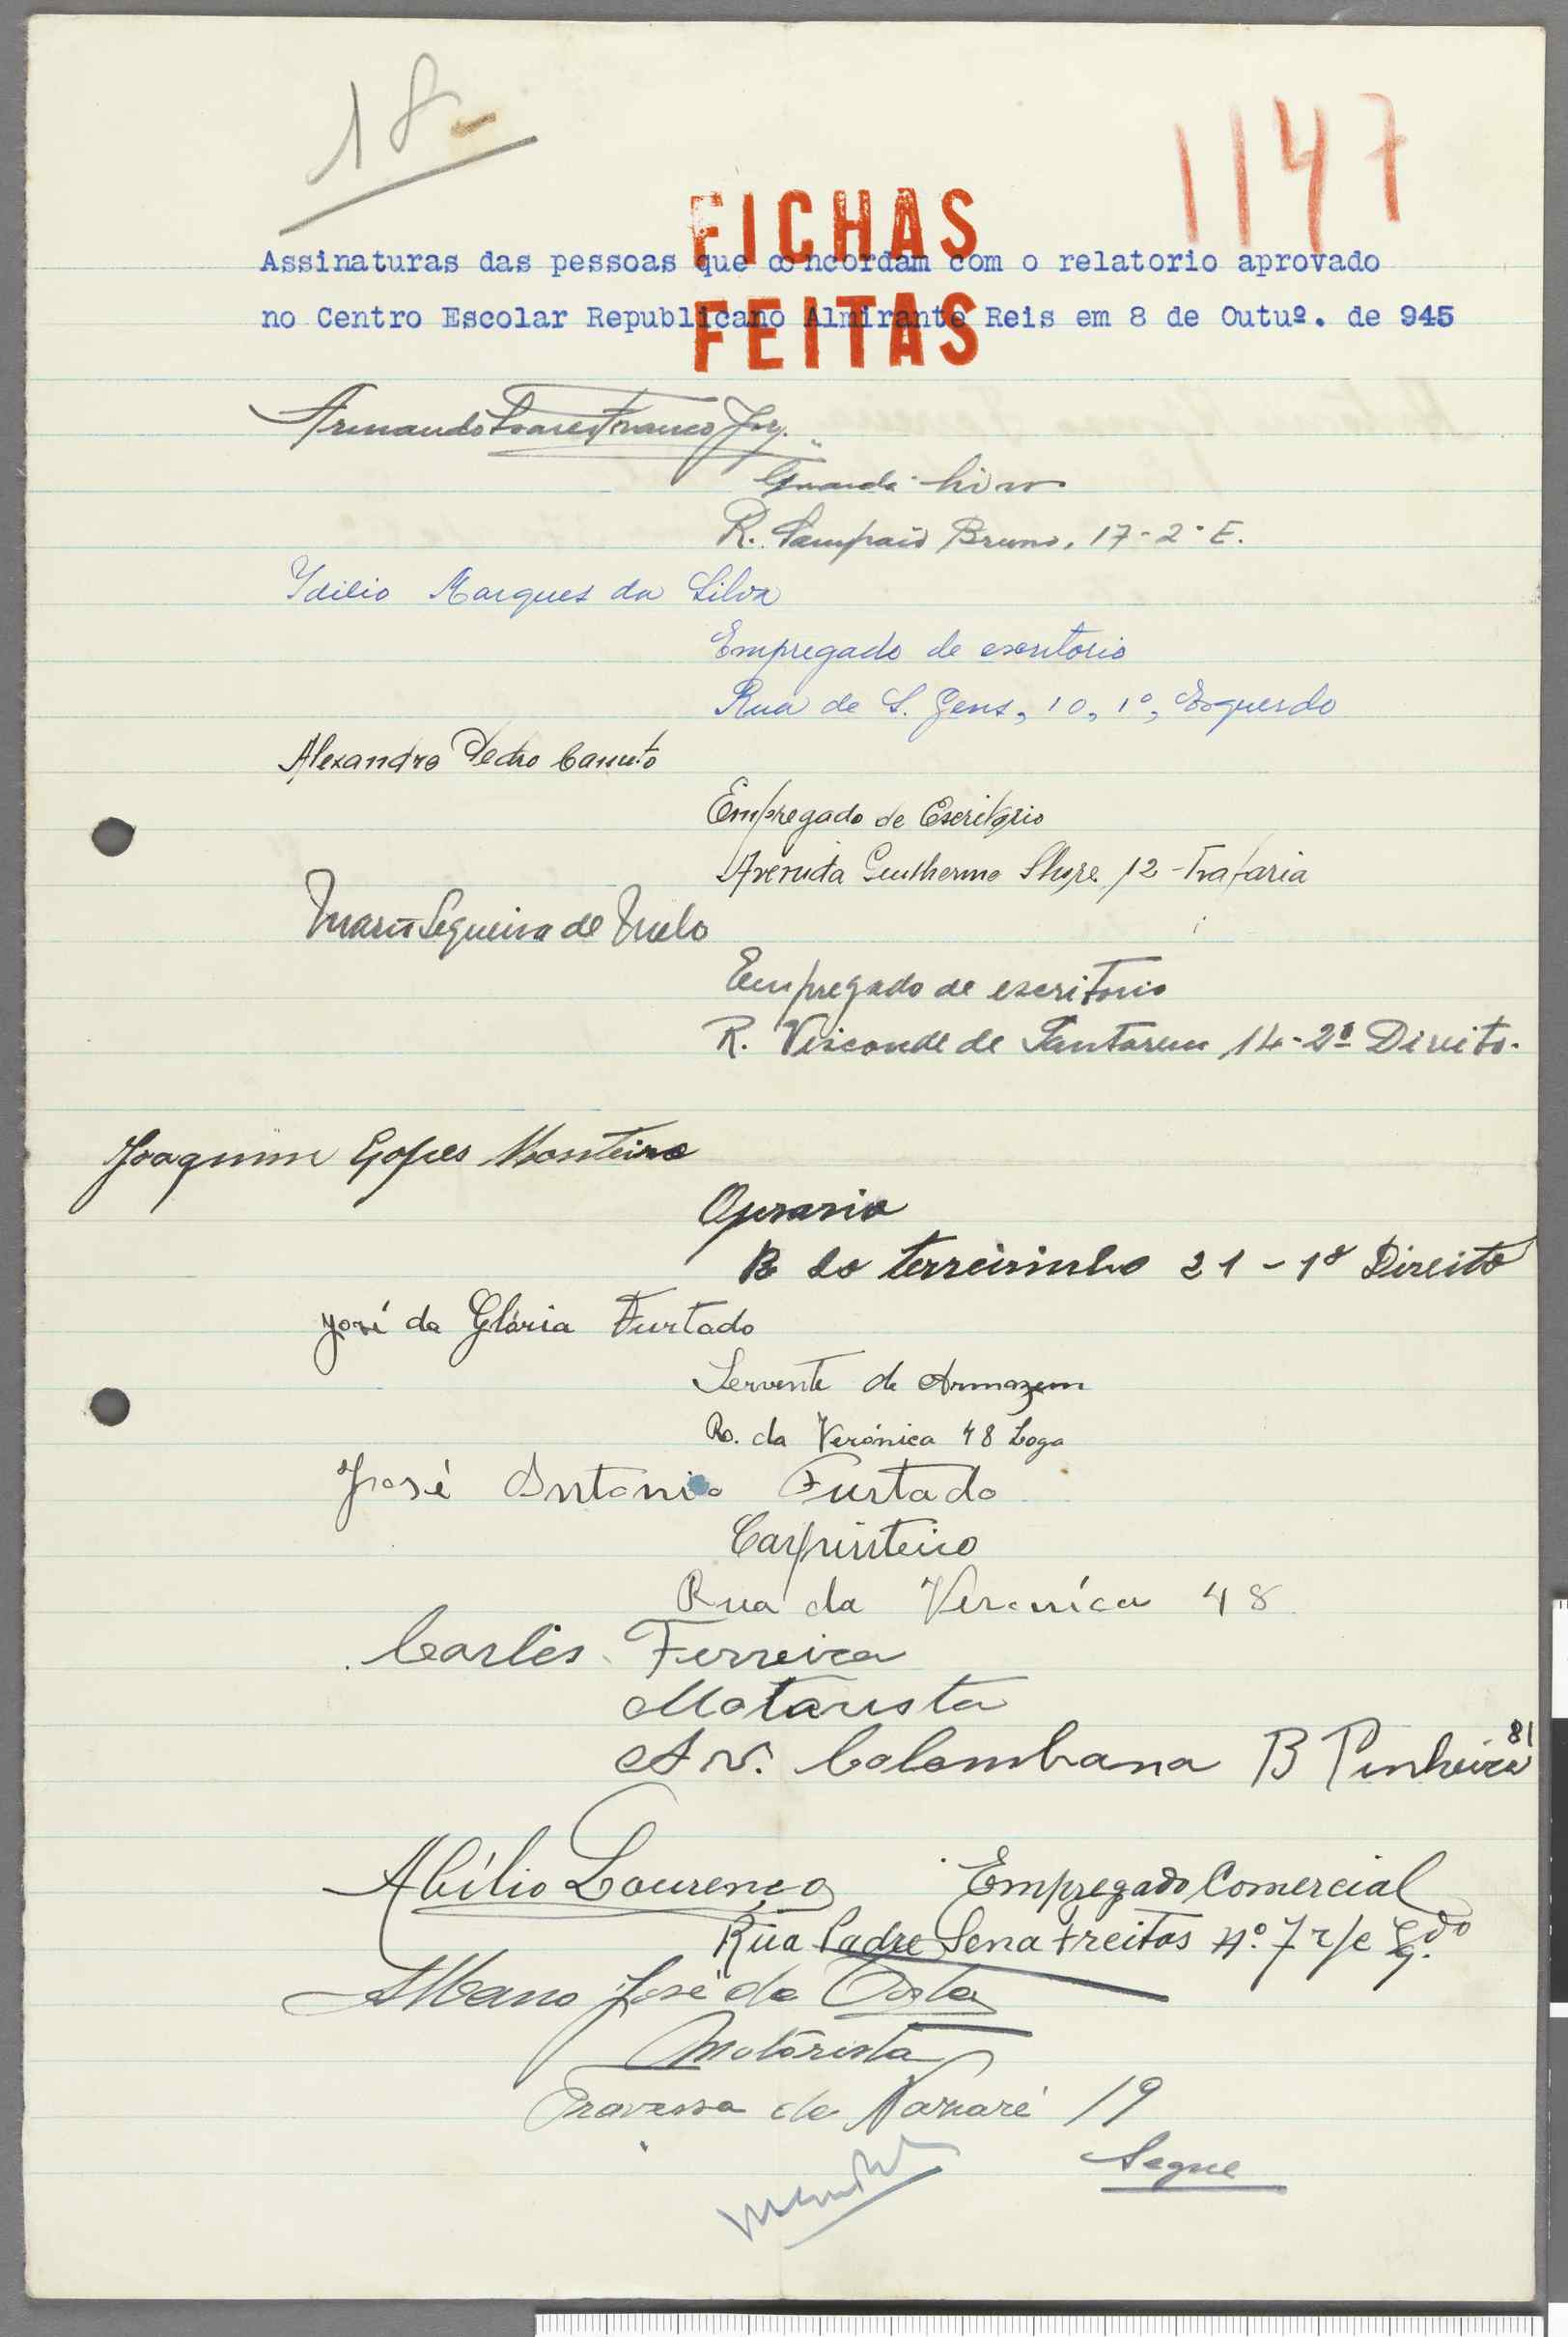 18
1147
FICHAS
Assinaturas das pessoas que concordam com o relatorio aprovado
FEITAS
no Centro Escolar Republicano Almirante Reis em 8 de Outuº. de 945
Armando Soares Franco Jor.
Guarda-livros
R. Sampaio Bruno, 17-2º E.
Idilio Marques da Silva
Empregado de escritorio
Rua de S. Gens, 10, 1º, Esquerdo
Alexandre Pedro Canuto
Empregado de Escritório
Avenida Guilherme 12 - Trafaria
Mario Sequeira de Melo
Empregado de escritorio
R. Visconde de Santarem 14-2º Direito.
Joaquim Lopes Monteiro
Operario
B do terreirinho 21 - 1º Direito
José da Glória Furtado
Servente de Armazem
R. da Verónica 48 Loga
José Antonio Furtado
Carpinteiro
Rua da Veronica 48
Carlos Ferreira
Motarista
Av. Calambana B Pinheiro 81
Abílio Lourenço Empregado Comercial
Rua Padre Sena Freitas Nº. 7 r/c Eqdo.
Albano José da Costa
Motorista
Travessa da Nazaré 19
Segue